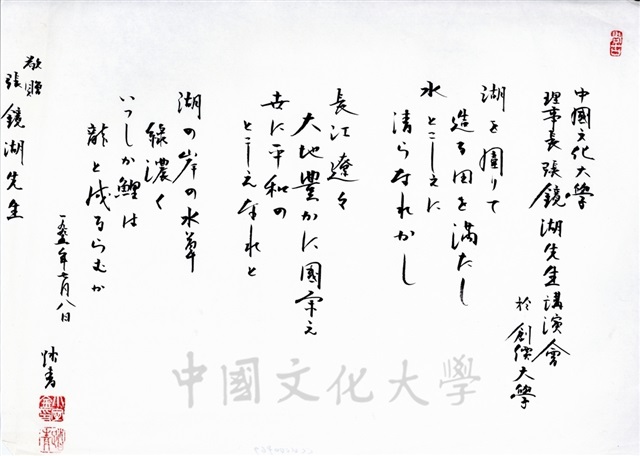 中國文化大學
理事長張鏡湖先生講演會
於 創価大學
湖を圍りて
造る田を満たし
水とこしえに
清らなれかし
長江遼々
大地豊かに國栄え
世に平和の
とこしえなれと
湖の岸の水草
緑濃く
いつしか鯉は
龍と成るらむか
一九九五年 月八日
敬贈
張鏡湖先生
中國文化大學